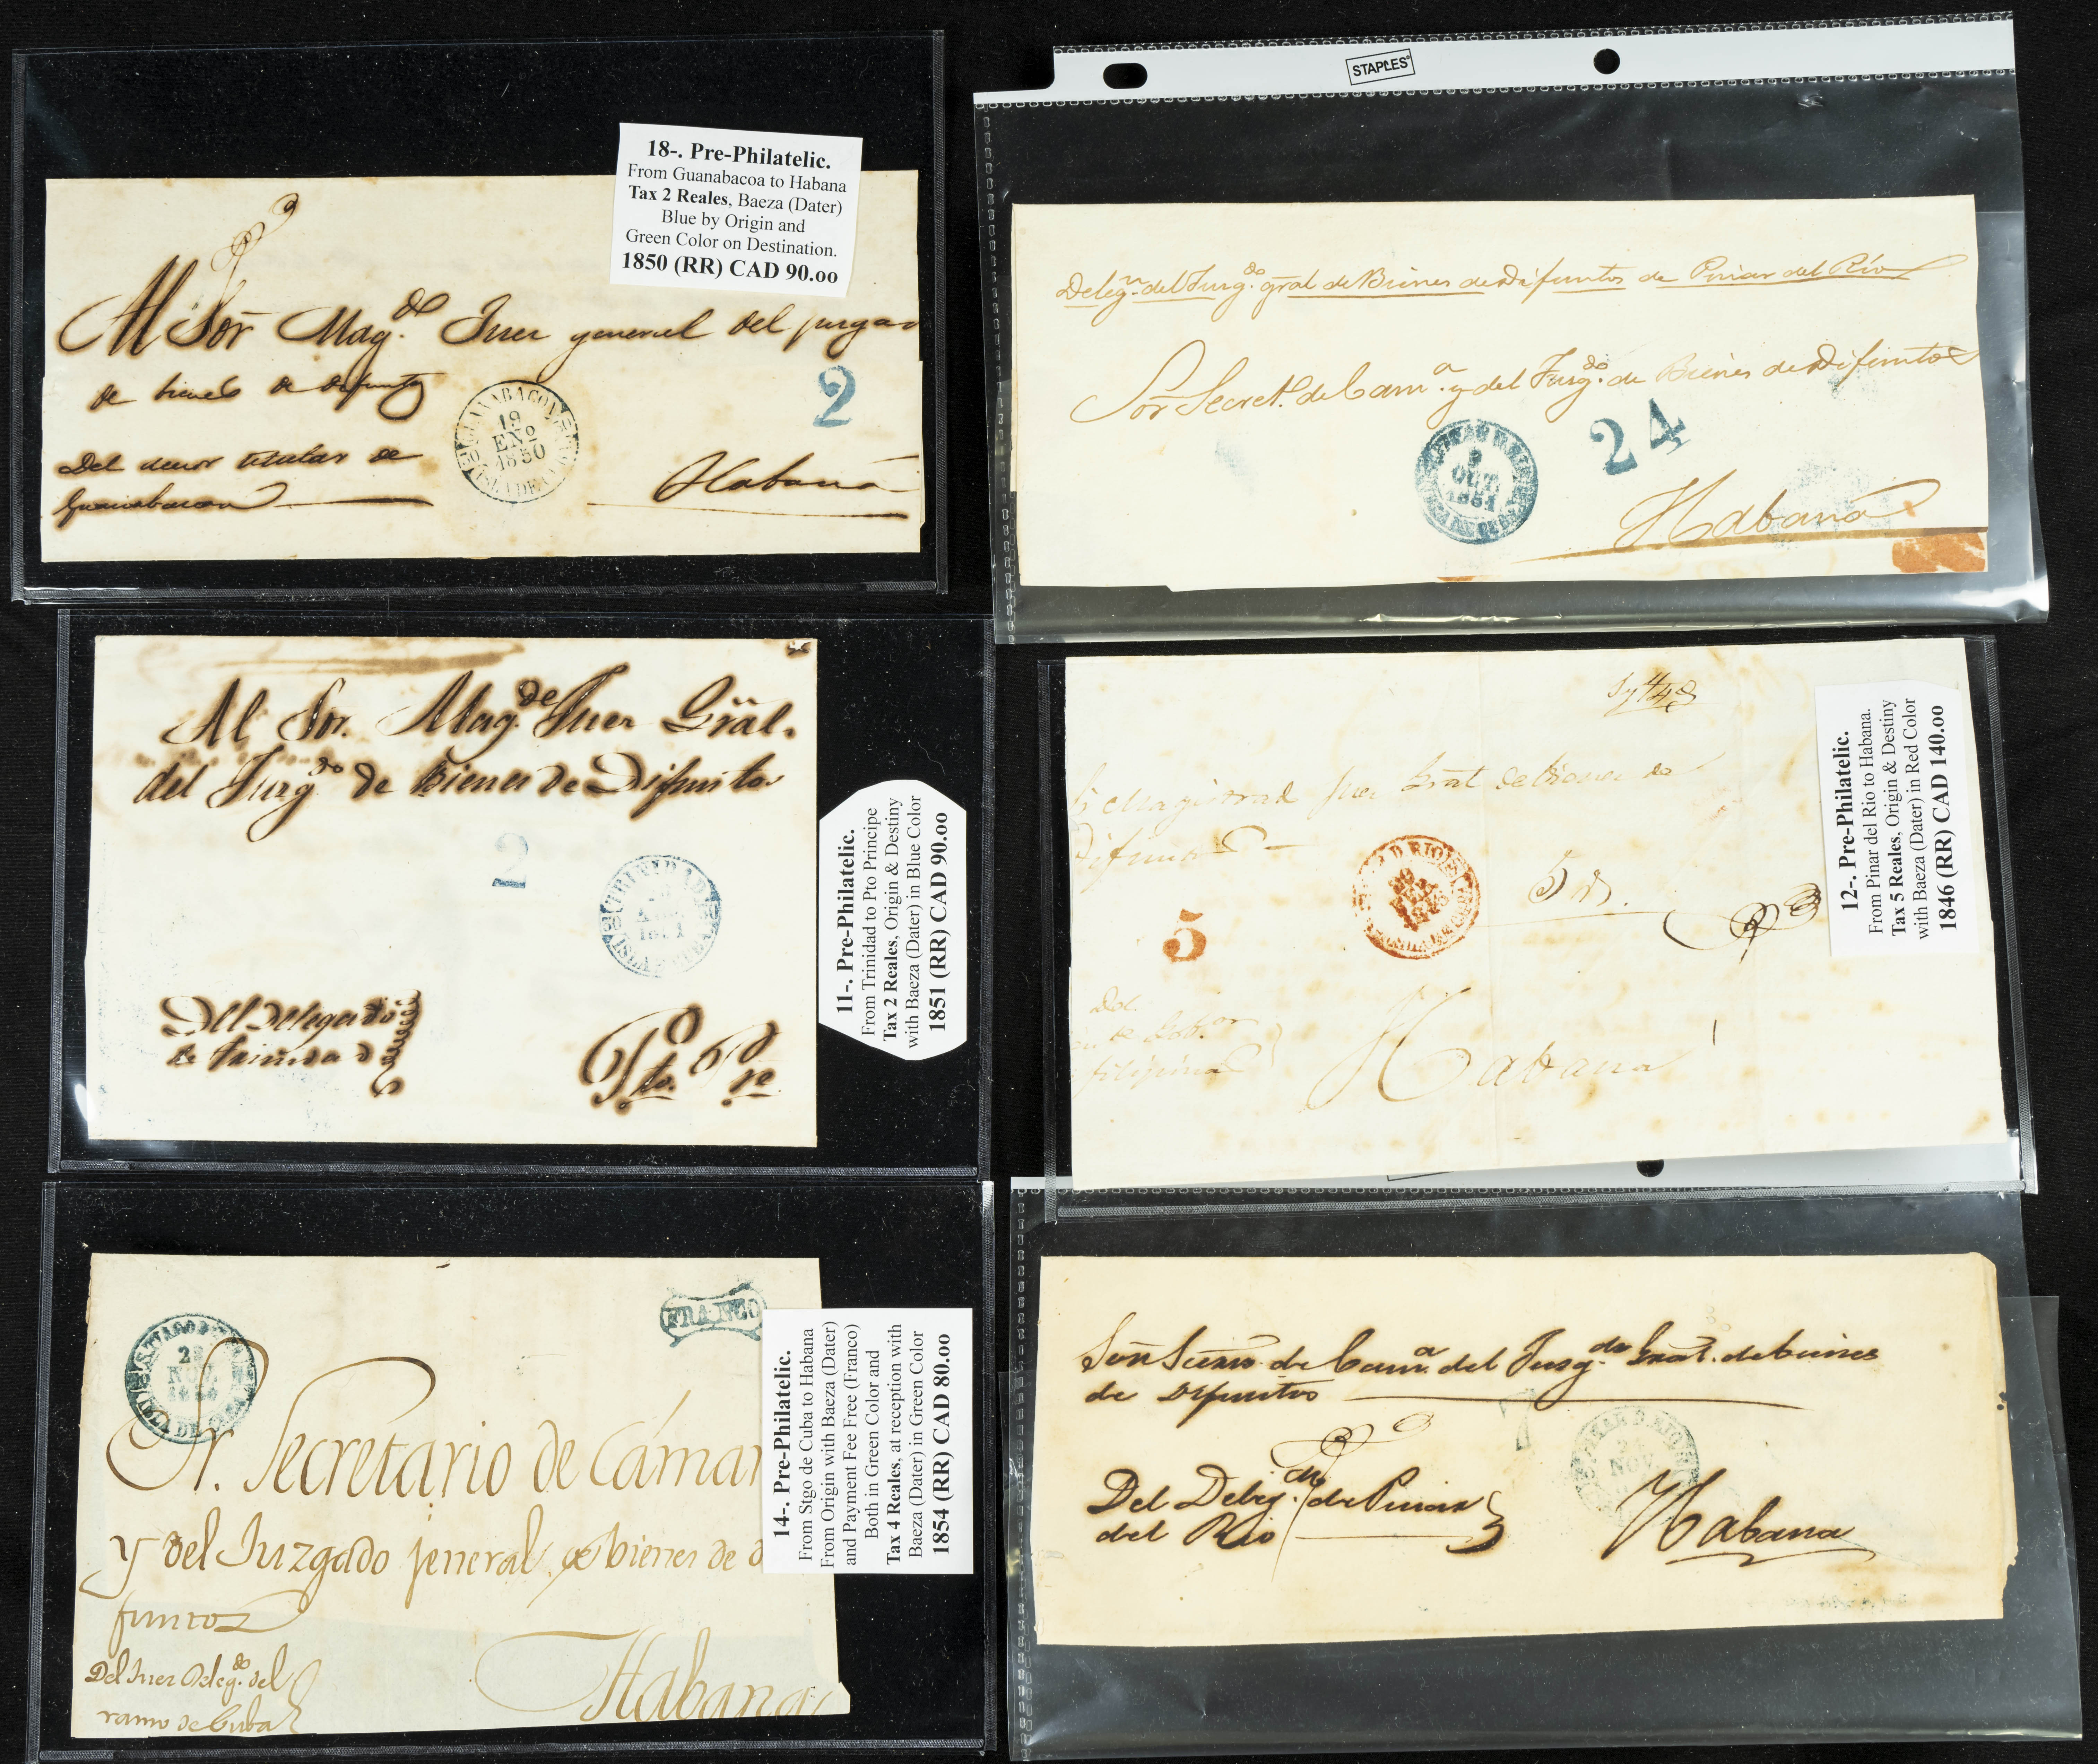 18-. Pre-Philatelic.
From Guanabacoa to Habana
Tax 2 Reales, Baeza (Dater)
Blue by Origin and
Green Color on Destination.
1850 (RR) CAD 90.oo
Al Sor Mag.do Juez general del juzga
de bienes de difuntos
GUANABACOA
19
ENO
1850
ISLA DE CUBA
2
Del
Guanabacoa
Habana
STAPLES
Deleg.n del Juzg.do gral de Bienes de Difuntos de Pinar del Rio
Sor Secret.o de Cam.a y del Juzg.do de Bienes de Difuntos
24
9
OCT.
1851
Habana
Al Sor. Mag.do Juez Gral.
del Juzg.do de Bienes de Difuntos
2
TRINIDAD
1851
Del Delegado
de Trinidad
Pto. Pe
11-. Pre-Philatelic.
From Trinidad to Pto Principe
Tax 2 Reales, Origin & Destiny
with Baeza (Dater) in Blue Color
1851 (RR) CAD 90.oo
Magistrado Juez Gral de bienes de
Difuntos
5
Habana
12-. Pre-Philatelic.
From Pinar del Rio to Habana.
Tax 5 Reales, Origin & Destiny
with Baeza (Dater) in Red Color
1846 (RR) CAD 140.oo
FRANCO
Sr. Secretario de Cámar
y del Juzgado jeneral de bienes de d
funtos
Del Juez Deleg.do del
ramo de Cuba
Habana
14-. Pre-Philatelic.
From Stgo de Cuba to Habana
From Origin with Baeza (Dater)
and Payment Fee Free (Franco)
Both in Green Color and
Tax 4 Reales, at reception with
Baeza (Dater) in Green Color
1854 (RR) CAD 80.oo
de Cam.a del Juzg.do Gral. de bienes
de Difuntos
7
NOV.
Del Deleg.do de Pinar
del Rio
Habana